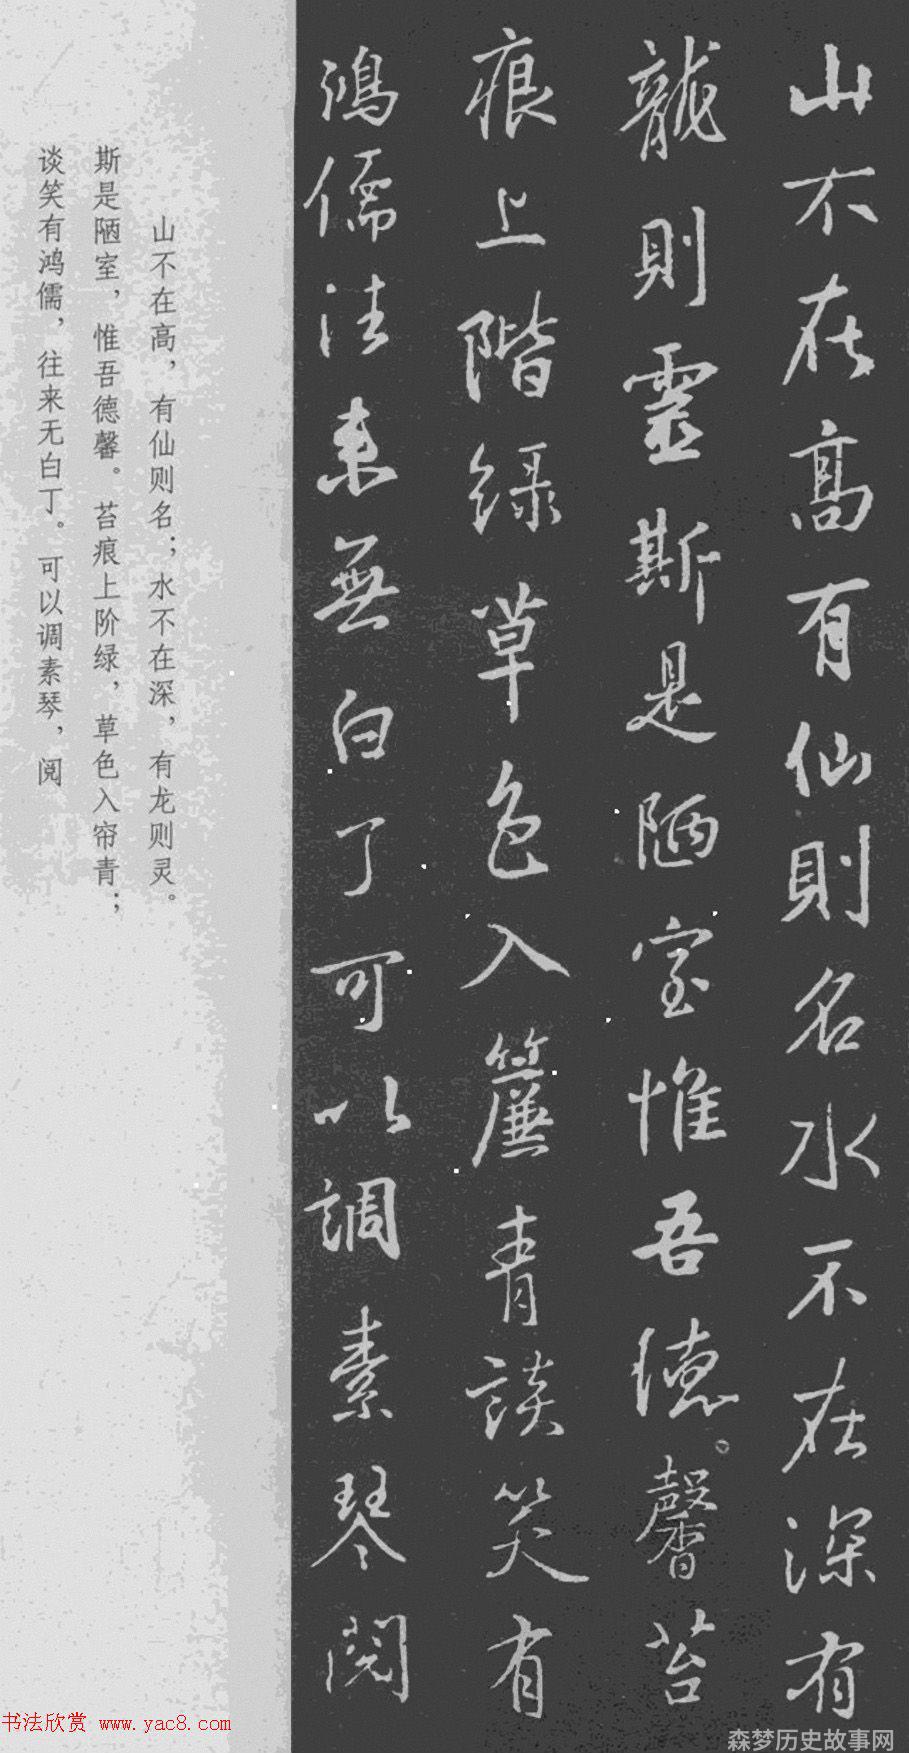 山不在高有仙則名水不在深有
龍則靈斯是陋室惟吾德馨苔
痕上階緑草色入簾青談笑有
鴻儒往來無白丁可以調素琴閱
山不在高，有仙则名；水不在深，有龙则灵。
斯是陋室，惟吾德馨。苔痕上阶绿，草色入帘青；
谈笑有鸿儒，往来无白丁。可以调素琴，阅
书法欣赏 www.yac8.com
森梦历史故事网